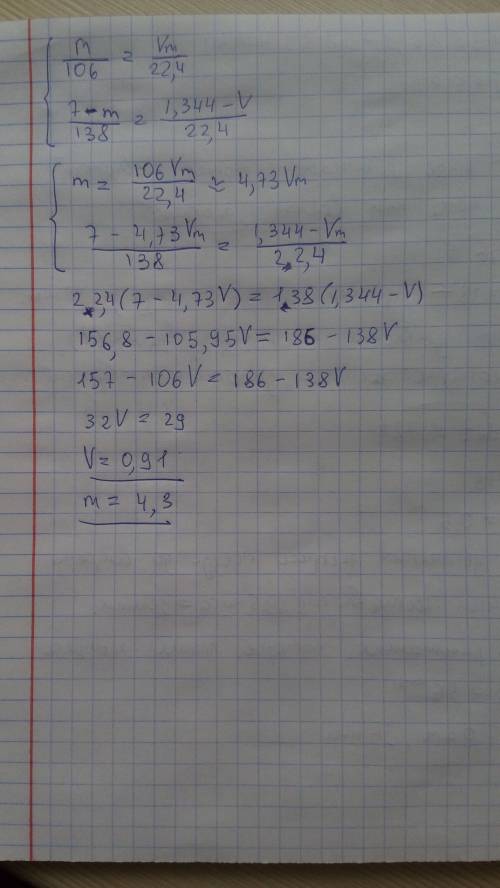 m/106 = Vm/22,4
7-m/138 = 1,344-V/22,4
m = 106Vm/22,4 ≈ 4,73Vm
7-4,73Vm/138 = 1,344-Vm/22,4
22,4(7-4,73V) = 138(1,344-V)
156,8-105,95V = 186-138V
157-106V = 186-138V
32V = 29
V = 0,91
m = 4,3